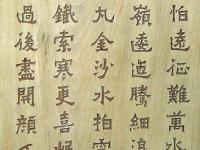 怕遠征難萬水
嶺逶迤騰細浪
丸金沙水拍雲
鐵索寒更喜岷
過後盡開顏